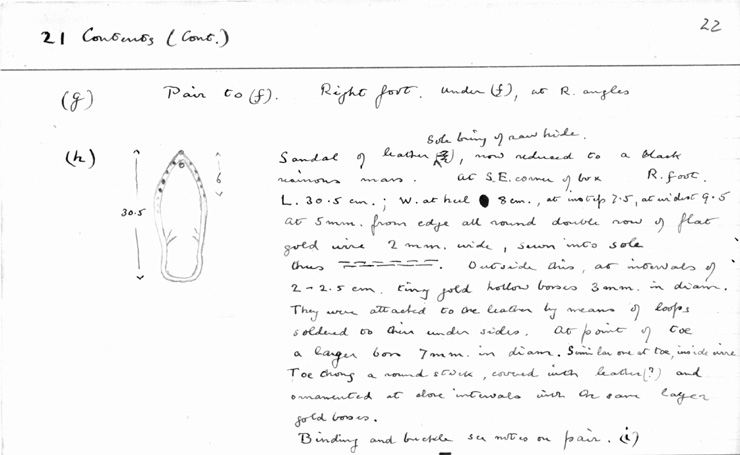 22
21 Contents (Cont.)
(g) Pair to (f). Right foot. Under (f), at R. angles
(h) Sandal of leather, now reduced to a black
Sole being of raw hide.
resinous mass. At S.E. corner of box R. foot.
L. 30.5 cm.; W. at heel 8 cm., at instep 7.5, at widest 9.5
At 5 mm. from edge all round double row of flat
gold wire 2 mm. wide, sewn into sole
thus. Outside this, at intervals of
2 - 2.5 cm. tiny gold hollow bosses 3 mm. in diam.
They were attached to the leather by means of loops
soldered to their under sides. At point of toe
a larger boss 7 mm. in diam. Similar one at toe, inside wire
Toe thong a round stick, covered with leather (?) and
ornamented at close intervals with the same larger
gold bosses.
Binding and buckle see notes on pair. (i)
30.5
6